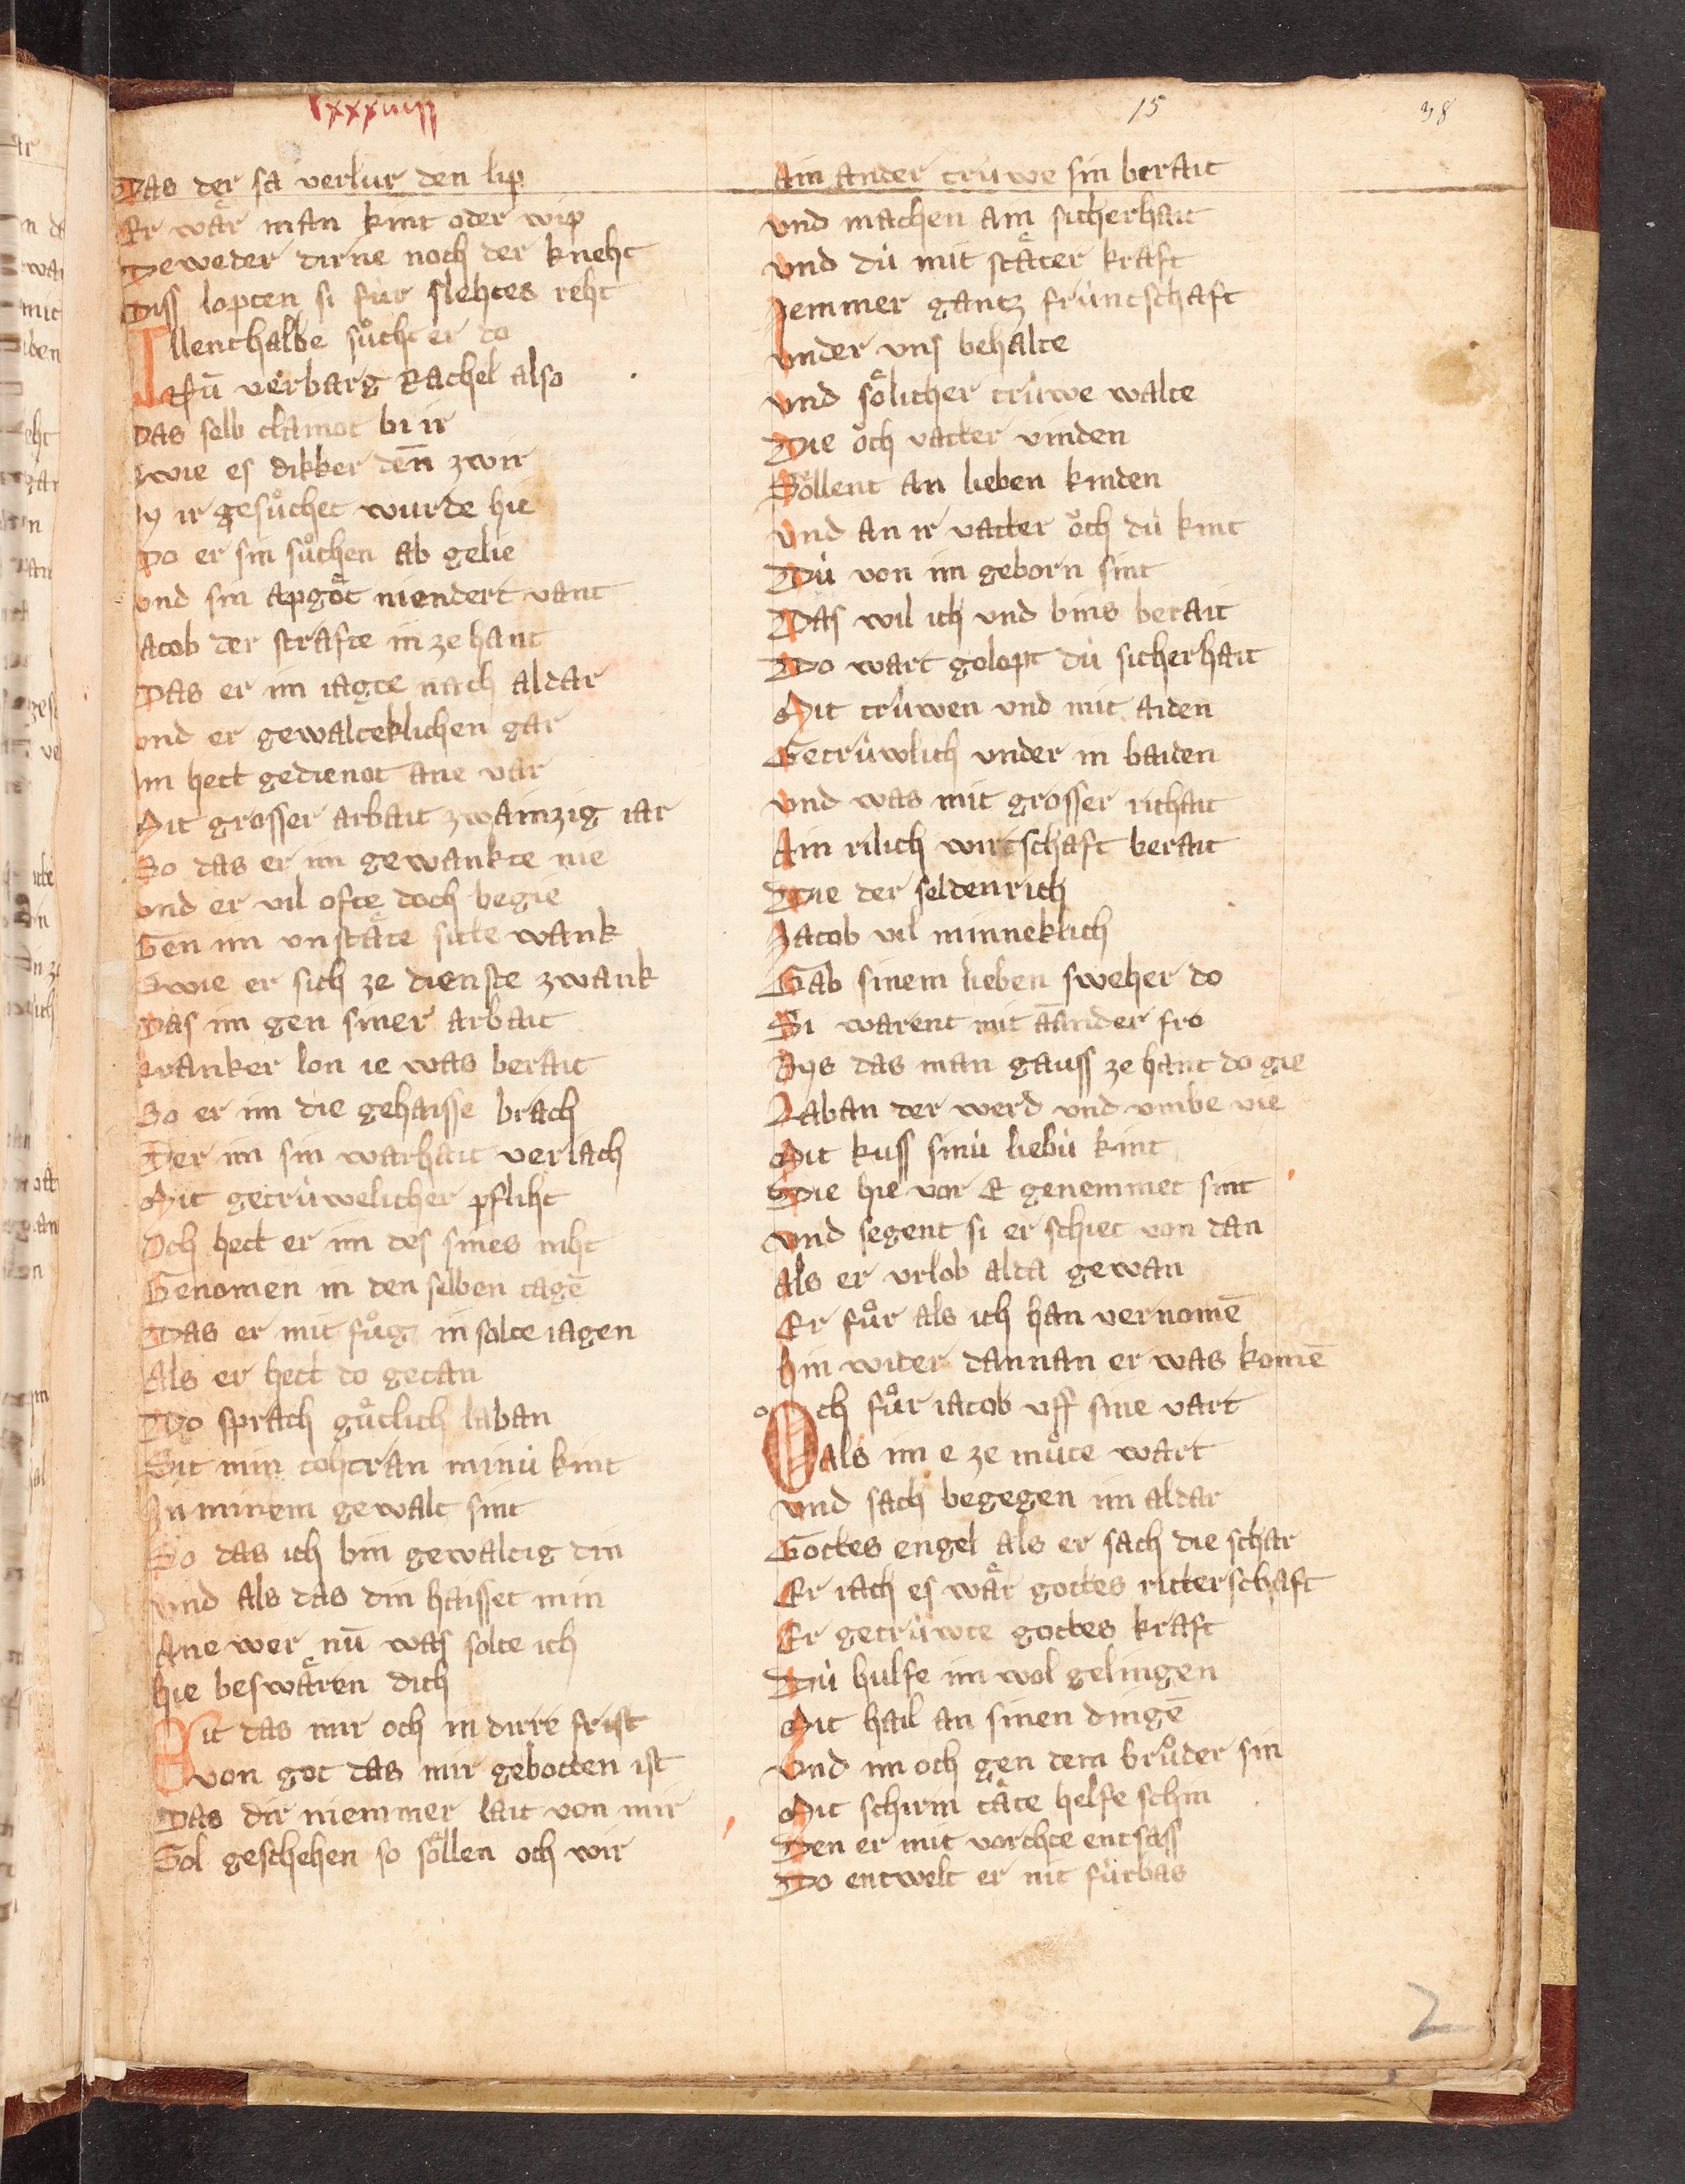 lxxxviiij
15
38
Das der sa verlur den lip
Er wär man kint oder wip
Deweder dirne noch der kneht
Diss lopten si für slehtes reht
Allenthalbe sůcht er do
Nū verbarg Rachel also
Das selb clainot bi ir
Swie es dikker deñ zwir
By ir gesůchet wurde hie
Do er sin sůchen ab gelie
und sin apgöt niendert vant
Jacob der strafte in ze hant
Das er im iagte nach aldar
und er gewalteklichen gar
Im hett gedienot ane var
Mit grosser arbait zwainzig iar
So das er im gewankte nie
und er vil ofte doch begie
Gen im unstäte sitte wank
Swie er sich ze dienste zwank
Das im gen siner arbait
kranker lon ie was berait
So er im die gehaisse brach
Der im sin warhait veriach
Mit getrüwelicher pfliht
Och hett er im des sines niht
Genomen in den selben tagē
Das er mit fůg in solte iagen
Als er hett do getan
Do sprach gůtlich laban
Sit min tohtran minü kint
In minem gewalt sint
So das ich bin gewaltig din
und als das din haisset min
Ane wer nū was solte ich
hie beswären dich
Sit das mir och in dirre frist
von got das mir gebotten ist
Das dir niemmer lait von mir
Sol geschehen so söllen och wir
Ain ander trüwe sin berait
und machen ain sicherhait
und dü mit stäter kraft
Jemmer gantz früntschaft
under uns behalte
und sölicher trüwe walte
Die öch vatter vinden
Söllent an lieben kinden
und an ir vatter öch dü kint
Dü von im geborn sint
Das wil ich und bins berait
Do wart golopt dü sicherhait
Mit trüwen und mit aiden
Getrüwlich under in baiden
und was mit grosser richait
Ain rilich wirtschaft berait
Die der seldenrich
Jacob vil minneklich
Gab sinem lieben sweher do
Si warent mit ānander fro
Bys das man gauss ze hant do gie
Laban der werd und umbe vie
Mit kuss sinü liebü kint
Die hie vor E genemmet sint
und segent si er schiet von dan
Als er urlob alda gewan
Er fůr als ich han vernomē
hin wider dannan er was komē
Och fůr iacob uff sine vart
als im e ze můte wart
und sach begegen im aldar
Gottes engel als er sach die schar
Er iach es wär gottes ritterschaft
Er getrüwte gottes kraft
Dü hulfe im wol gelingen
Mit hail an sinen dingē
und im och gen dem brůder sin
Mit schirm täte helfe schin
Den er mit vorchte entsass
Do entwelt er nit fürbas
2